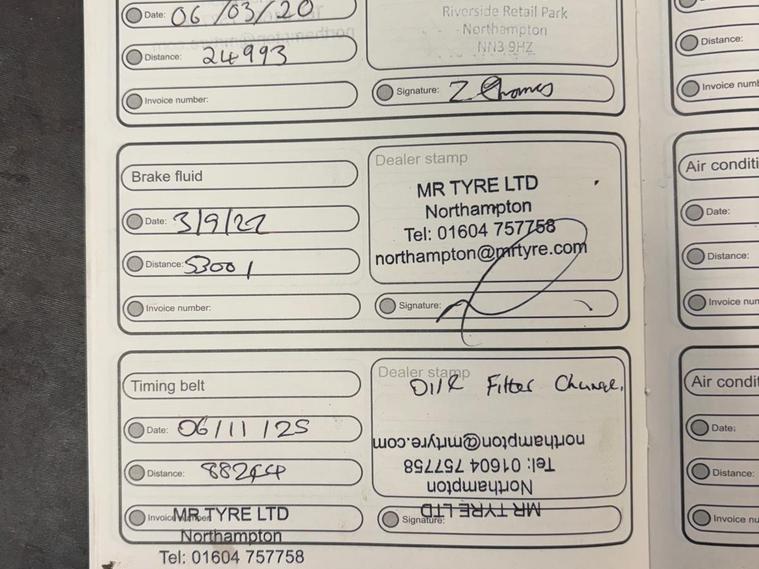 Date: 06/03/20
Distance: 24993
Invoice number:
Riverside Retail Park
Northampton
NN3 9HZ
Signature:
Brake fluid
Date: 3/9/22
Distance: 53001
Invoice number:
Dealer stamp
MR TYRE LTD
Northampton
Tel: 01604 757758
northampton@mrtyre.com
Signature:
Timing belt
Date: 06/11/25
Distance: 88244
Invoice number:
MR TYRE LTD
Northampton
Tel: 01604 757758
Dealer stamp
Oil & Filter Change.
MR TYRE LTD
Northampton
Tel: 01604 757758
northampton@mrtyre.com
Signature:
Distance:
Invoice numb
Air conditi
Date:
Distance:
Invoice nun
Air condit
Date:
Distance:
Invoice nu